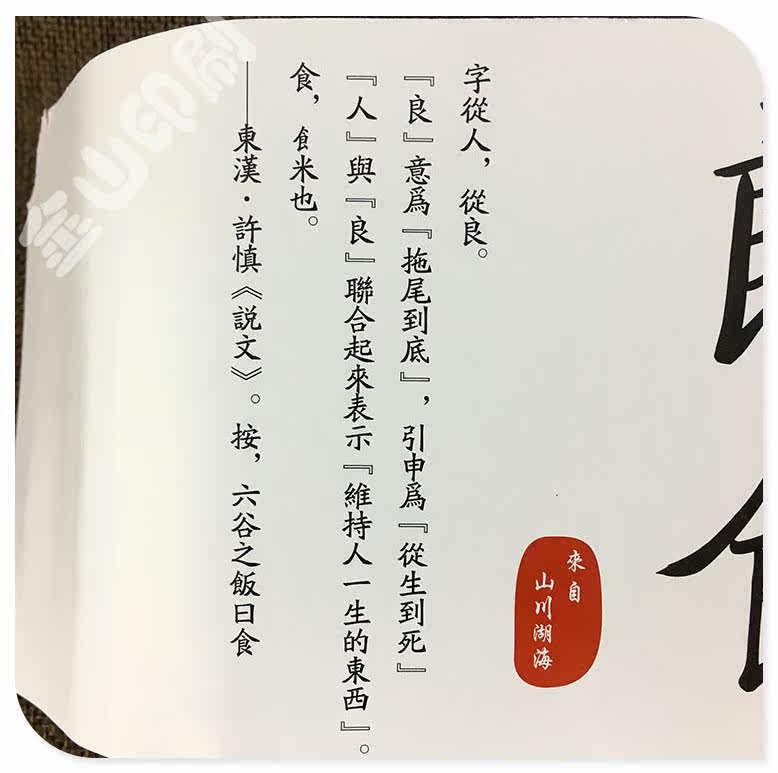 字從人，從良。
『良』意爲『拖尾到底』，引申爲『從生到死』
『人』與『良』聯合起來表示『維持人一生的東西』。
食，飠米也。
——東漢·許慎《説文》。按，六谷之飯曰食
來自
山川湖海
金山印刷